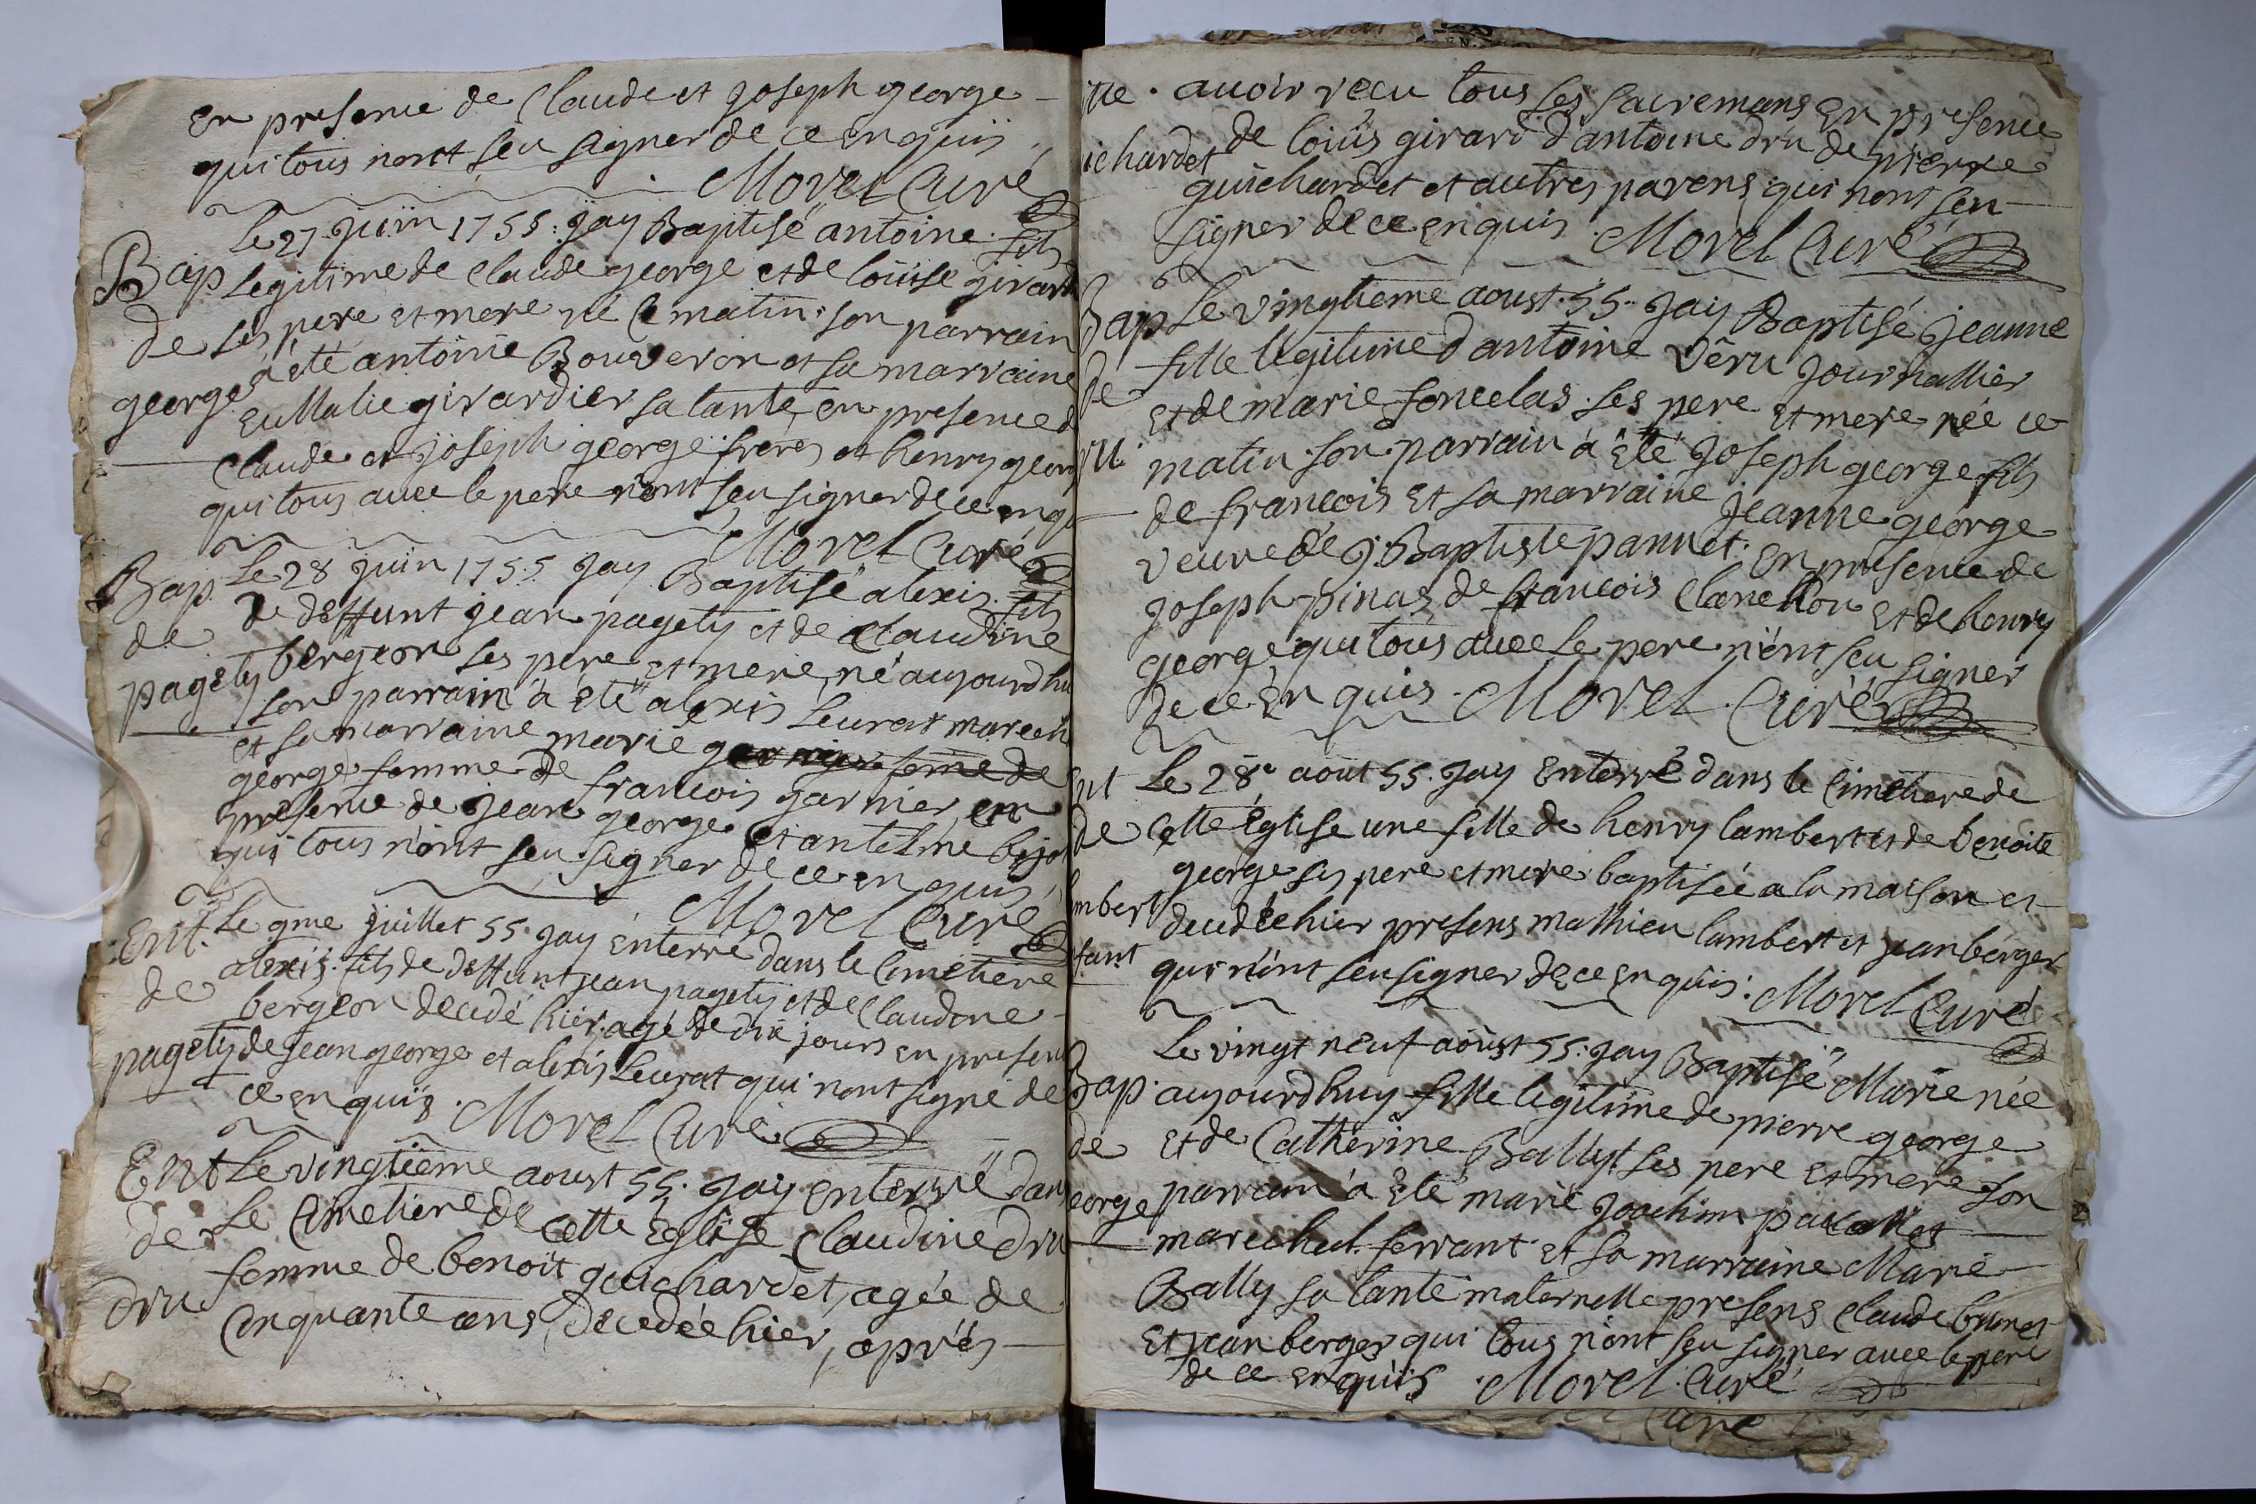 en presence de Claude et joseph george
qui tous nont seu signer de ce enquis
Morel Curé
Le 27 juin 1755: jay Baptisé antoine fils
Bap legitime de Claude george et de loüise girard
de ses pere et mere né Ce matin: son parrain
george à été antoine Bouveron et sa marraine
eullalie girardier sa tante, en presence d
Claude et joseph george freres et henry georg
qui tous avec le pere n'ont seu signer de ce enqu
Morel Curé
Bap Le 28 juin 1755 jay Baptisé alexis fils
de de deffunt jean pagety et de Claudine
pagety bergeon ses pere et mere, né aujourdhu
son parrain à été alexis leurat marech
et sa marraine marie garnier feme de
george femme de francois garnier en
presence de jean george et antelme bejo
qui tous n'ont seu signer de ce enquis
Morel Curé
Ent. Le 9me juillet 55. jay enterré dans le Cimetiere
de alexis fils de deffunt jean pagety et de Claudine
bergeon decedé hier agé de dix jours en presen
pagety de jean george et alexis leurat qui nont signé de
ce enquis. Morel Curé
Ent Le vingtieme aoust 55. jay enterré dans
de le Cimetiere de cette Eglise Claudine dru
femme de benoit guichardet, agée de
dru Cinquante ans, decedée hier, aprés
tte. avoir recu tous les sacremans en presence
ichardet de loüis girard d'antoine dru de pierre
guichardet et autres parens qui nont seu
signer de ce enquis. Morel Curé
Bap Le vingtieme aoust. 55. jay Baptisé jeanne
de fille legitime d'antoine Vêru journallier
et de marie foncelas. ses pere et mere née ce
ru matin. son parrain à été joseph george fils
de francois et sa marraine jeanne george
veuve de j. Baptiste pannet. en presence de
joseph pinas de francois Clanchon et de henry
george qui tous avec le pere n'ont seu signer
de ce enquis. Morel Curé
nt Le 28e aout 55. jay enterré dans le Cimetiere de
de cette église une fille de henry lambert et de benoite
george ses pere et mere baptisée a la maison et
mbert decedée hier presens mathieu lambert et jean berger
fant qui n'ont seu signer de ce enquis. Morel Curé
Le vingt neuf aoüst 55. jay Baptisé Marie née
Bap. aujourdhuy fille legitime de pierre george
de et de Catherine Bally. ses pere et mere son
eorge parrain à été marie joachim
marechal ferrant et sa marraine Marie
Bally sa tante maternelle presens Claude brunet
et jean berger qui tous n'ont seu signer avec le pere
de ce enquis. Morel Curé
Curé